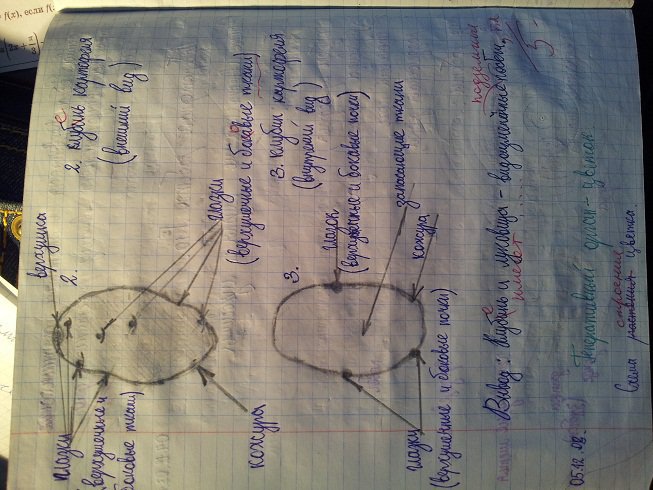 f(x), если f(
2. Клубень картофеля
(внешний вид)
верхушка
2.
глазки
(верхушечные и
боковые ткани)
глазки
(верхушечные и боковые ткани)
кожура
3. Клубни картофеля
(внутренний вид)
3.
глазок
(верхушечные и боковые почки)
запасающие ткани
кожура
глазки
(верхушечные и боковые почки)
подземные
Вывод: Клубень и луковица - видоизменённые побеги,
имеет
5-
05.12.08.
Генеративный орган - цветок
строения
Схема растения цветка.